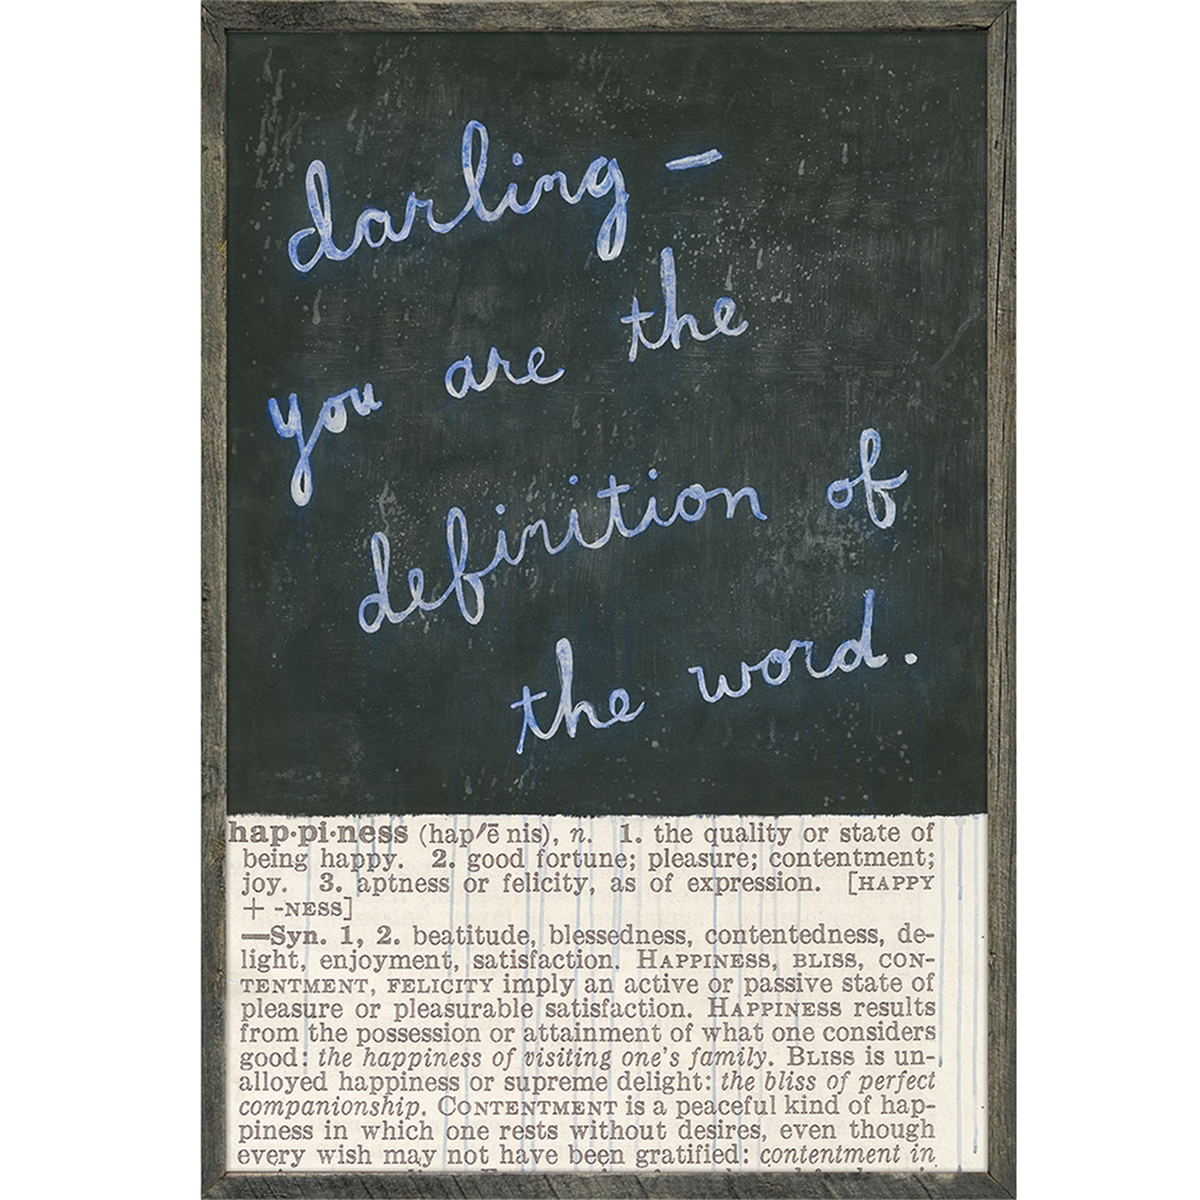 darling –
the
you are
definition of
the word.
hap·pi·ness (hap′ē nis), n. 1. the quality or state of
being happy. 2. good fortune; pleasure; contentment;
joy. 3. aptness or felicity, as of expression. [HAPPY
+ -NESS]
—Syn. 1, 2. beatitude, blessedness, contentedness, de-
light, enjoyment, satisfaction. HAPPINESS, BLISS, CON-
TENTMENT, FELICITY imply an active or passive state of
pleasure or pleasurable satisfaction. HAPPINESS results
from the possession or attainment of what one considers
good: the happiness of visiting one's family. BLISS is un-
alloyed happiness or supreme delight: the bliss of perfect
companionship. CONTENTMENT is a peaceful kind of hap-
piness in which one rests without desires, even though
every wish may not have been gratified: contentment in